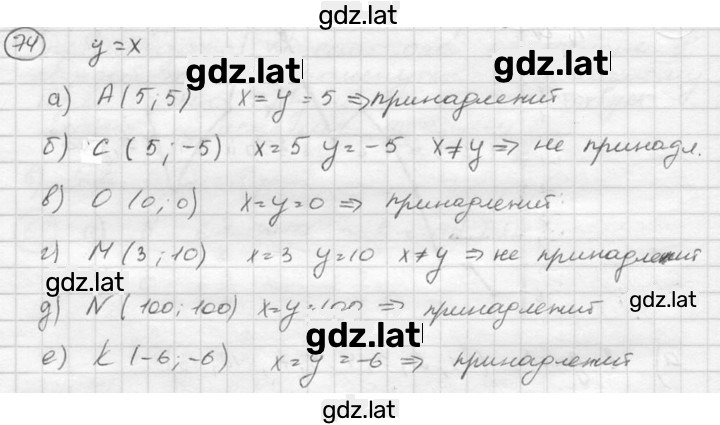 gdz.lat
74 y = x
gdz.lat gdz.lat
а) A (5; 5) x = y = 5 ⇒ принадлежит
б) C (5; -5) x = 5 y = -5 x ≠ y ⇒ не принадл.
в) O (0; 0) x = y = 0 ⇒ принадлежит
г) M (3; 10) x = 3 y = 10 x ≠ y ⇒ не принадлежит
gdz.lat gdz.lat
д) N (100; 100) x = y = 100 ⇒ принадлежит
gdz.lat
е) K (-6; -6) x = y = -6 ⇒ принадлежит
gdz.lat